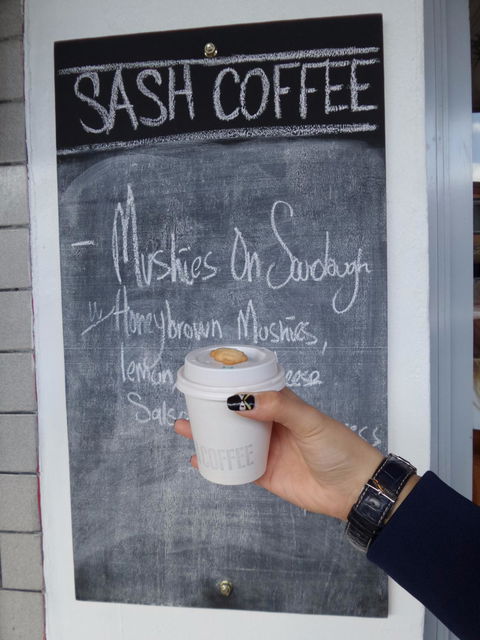 SASH COFFEE
- Mushies On Sourdough
Honeybrown Mushies,
lemon
COFFEE